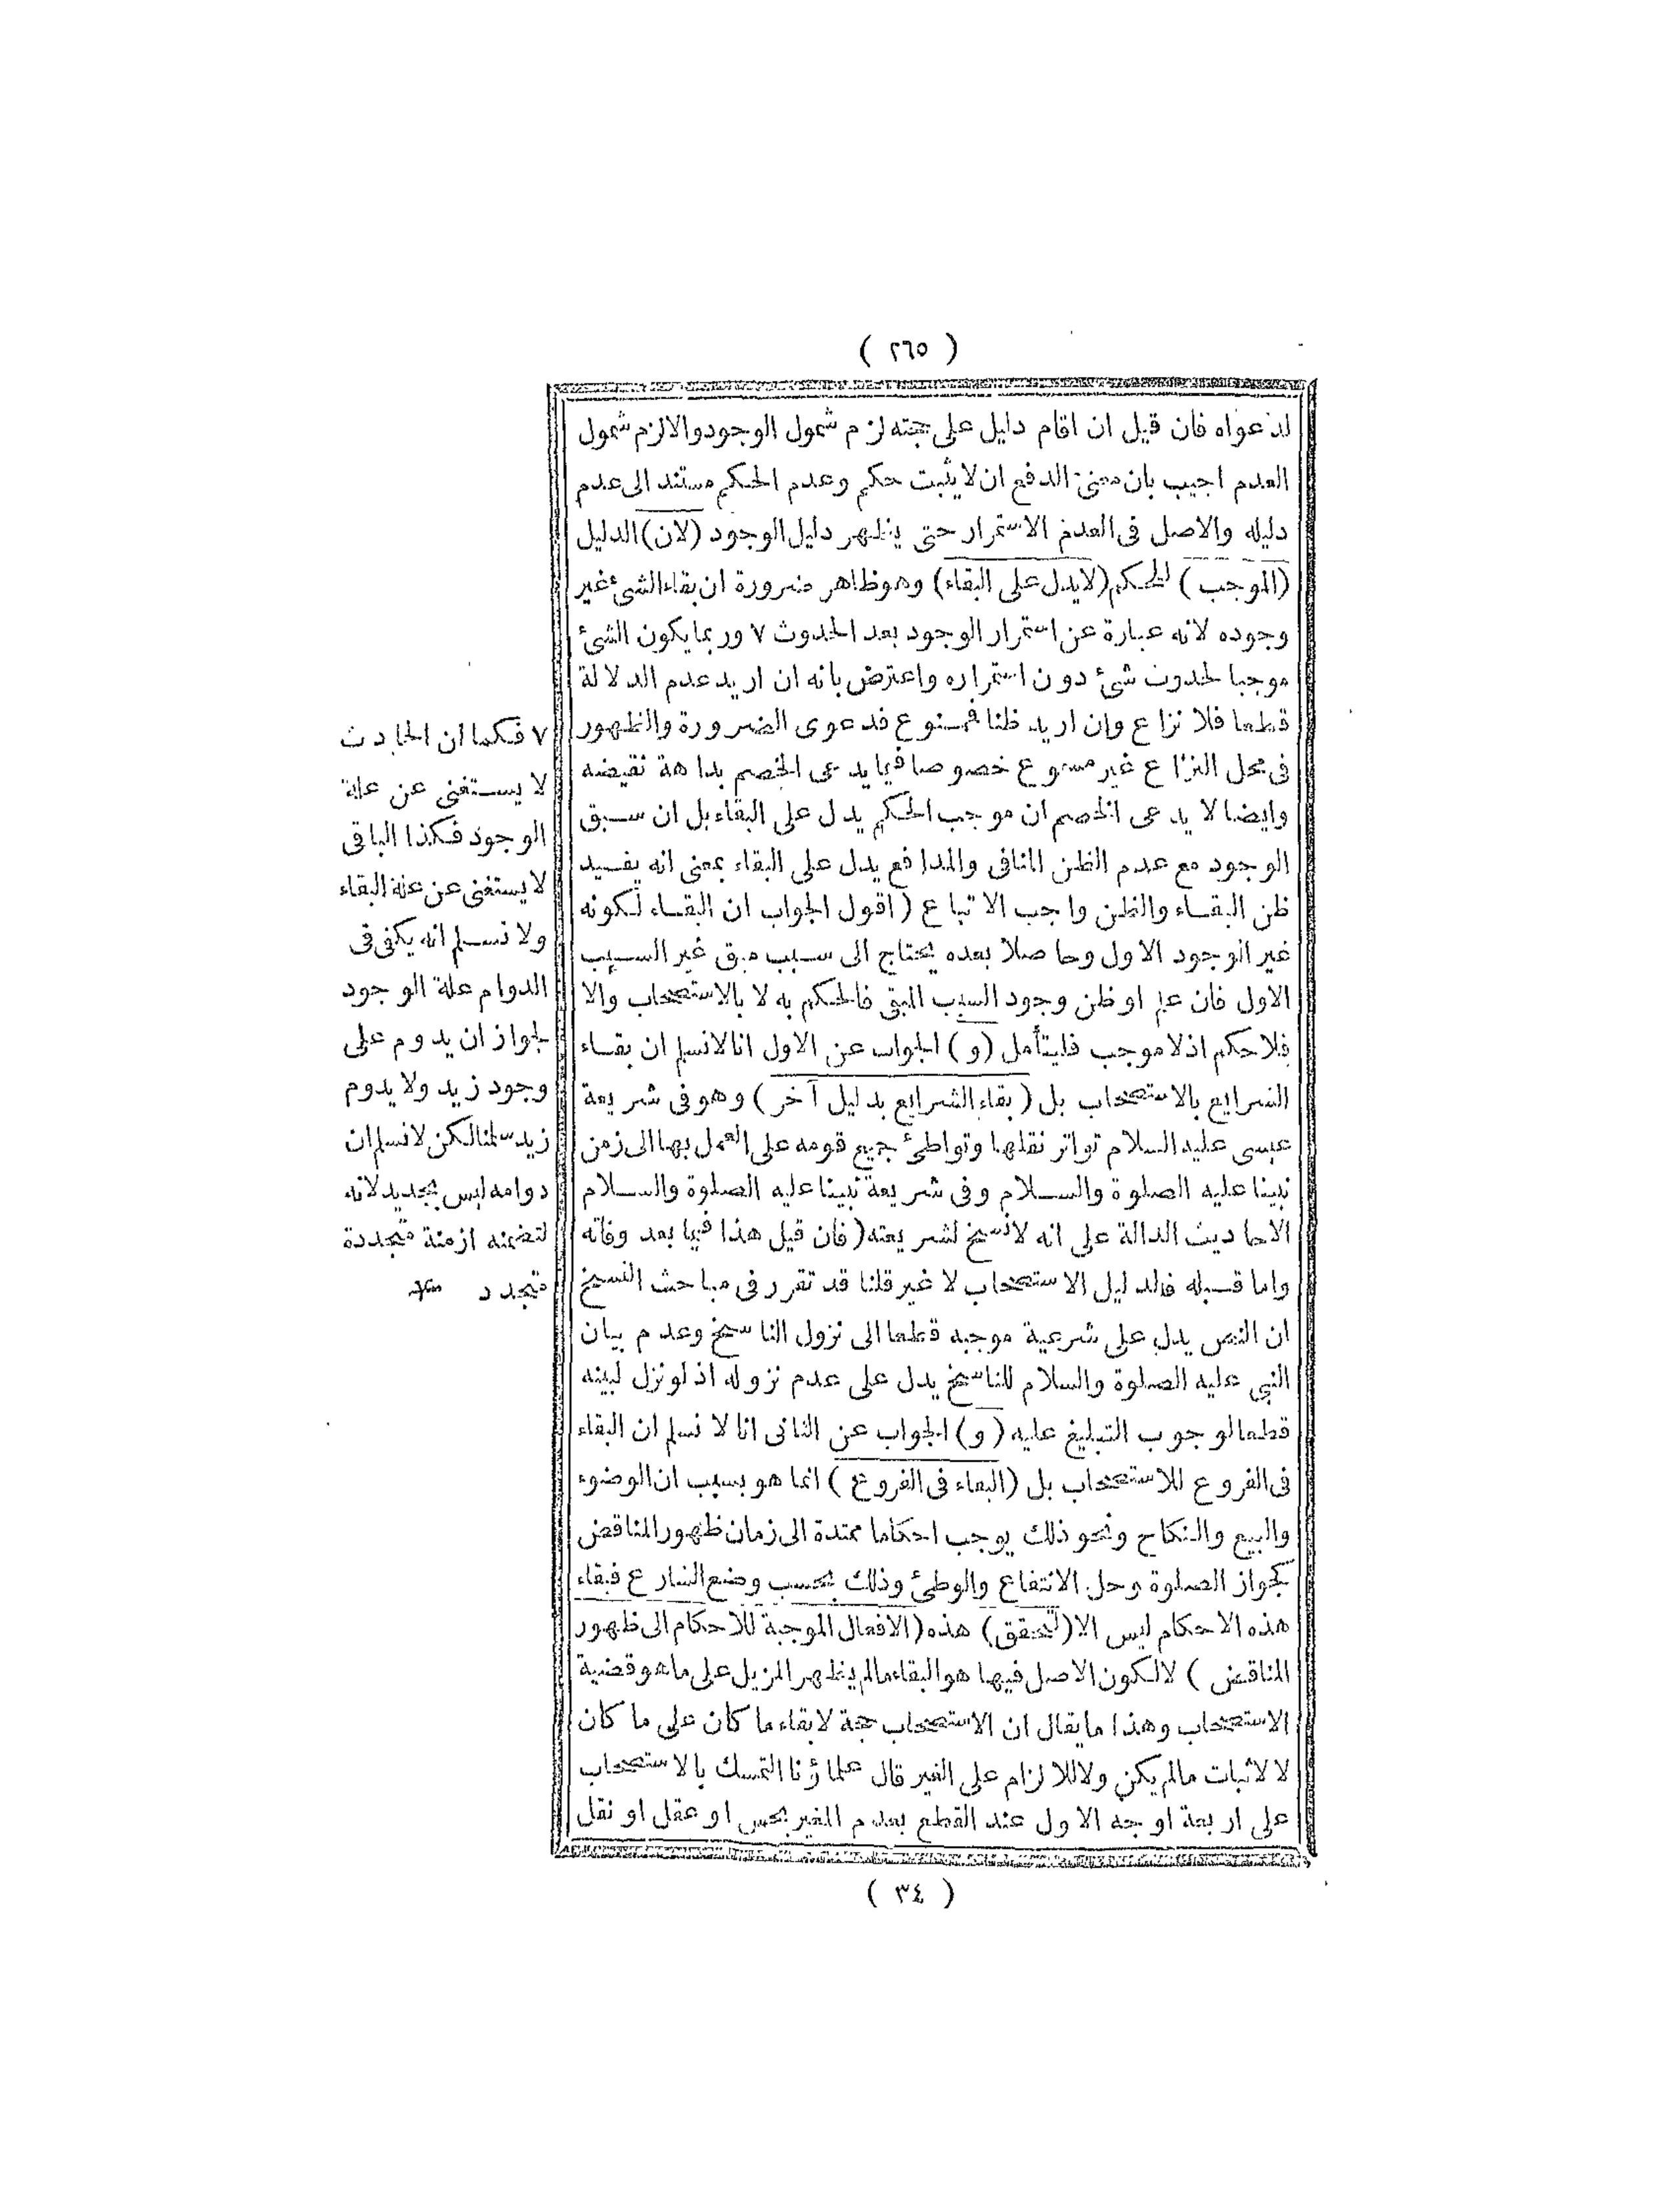 ( ٢٦٥ )
لدعواه فان قيل ان اقام دليل على حجته لزم شمول الوجود والالزم شمول
العدم اجيب بان معنى الدفع ان لا يثبت حكم وعدم الحكم مستند الى عدم
دليله والاصل فى العدم الاستمرار حتى يظهر دليل الوجود (لان) الدليل
(الموجب) للحكم (لايدل على البقاء) وهو ظاهر ضرورة ان بقاء الشئ غير
وجوده لانه عبارة عن استمرار الوجود بعد الحدوث ٧ وربما يكون الشئ
موجبا لحدوث شئ دون استمراره واعترض بانه ان اريد عدم الدلالة
قطعا فلا نزاع وان اريد ظنا فممنوع فدعوى الضرورة والظهور
فى محل النزاع غير مسموع خصوصا فيما يدعى الخصم بداهة نقيضه
وايضا لا يدعى الخصم ان موجب الحكم يدل على البقاء بل ان سبق
الوجود مع عدم الظن المنافى والمدافع يدل على البقاء بمعنى انه يفيد
ظن البقاء والظن واجب الاتباع (اقول الجواب ان البقاء لكونه
غير الوجود الاول وحاصلا بعده يحتاج الى سبب مبق غير السبب
الاول فان علم او ظن وجود السبب المبقى فالحكم به لا بالاستصحاب والا
فلا حكم اذ لا موجب فليتأمل (و) الجواب عن الاول انا لا نسلم ان بقاء
الشرايع بالاستصحاب بل (بقاء الشرايع بدليل آخر) وهو فى شريعة
عيسى عليه السلام تواتر نقلها وتواطئ جميع قومه على العمل بها الى زمن
نبينا عليه الصلوة والسلام وفى شريعة نبينا عليه الصلوة والسلام
الاحاديث الدالة على انه لا نسخ لشريعته (فان قيل هذا فيما بعد وفاته
واما قبله فالدليل الاستصحاب لا غير قلنا قد تقرر فى مباحث النسخ
ان النص يدل على شرعية موجبه قطعا الى نزول الناسخ وعدم بيان
النبى عليه الصلوة والسلام للناسخ يدل على عدم نزوله اذ لو نزل لبينه
قطعا لوجوب التبليغ عليه (و) الجواب عن الثانى انا لا نسلم ان البقاء
فى الفروع للاستصحاب بل (البقاء فى الفروع) انما هو بسبب ان الوضوء
والبيع والنكاح ونحو ذلك يوجب احكاما ممتدة الى زمان ظهور المناقض
كجواز الصلوة وحل الانتفاع والوطئ وذلك بحسب وضع الشارع فبقاء
هذه الاحكام ليس الا (لتحقق) هذه (الافعال الموجبة للاحكام الى ظهور
المناقض) لا لكون الاصل فيها هو البقاء مالم يظهر المزيل على ما هو قضية
الاستصحاب وهذا ما يقال ان الاستصحاب حجة لابقاء ما كان على ما كان
لا لاثبات مالم يكن ولا للالزام على الغير قال علماؤنا التمسك بالاستصحاب
على اربعة اوجه الاول عند القطع بعدم المغير بحس او عقل او نقل
٧ فكما ان الحادث
لا يستغنى عن علة
الوجود فكذا الباقى
لا يستغنى عن علة البقاء
ولا نسلم انه يكفى فى
الدوام علة الوجود
لجواز ان يدوم على
وجود زيد ولا يدوم
زيد سلمنا لكن لا نسلم ان
دوامه ليس بجديد لانه
لتضمنه ازمنة متجددة
متجدد
( ٣٤ )